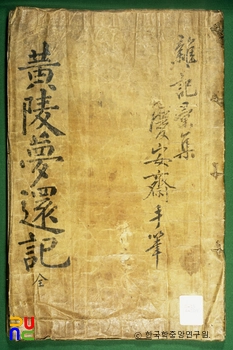 雜記彙集
慶安齋手筆
黃陵夢還記
全
ⓒ 한국학중앙연구원